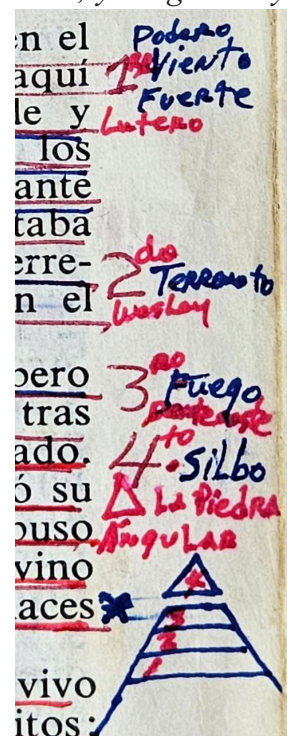 en el
aquí
de y
los
ante
taba
erre-
n el
pero
tras
ado.
ó su
puso
vino
aces
vivo
itos:
Poderо
1 Viento
Fuerte
Lutero
2do Terremoto
Wesley
3ro Fuego
4to Silbo
La Piedra
Angular
4
3
2
1